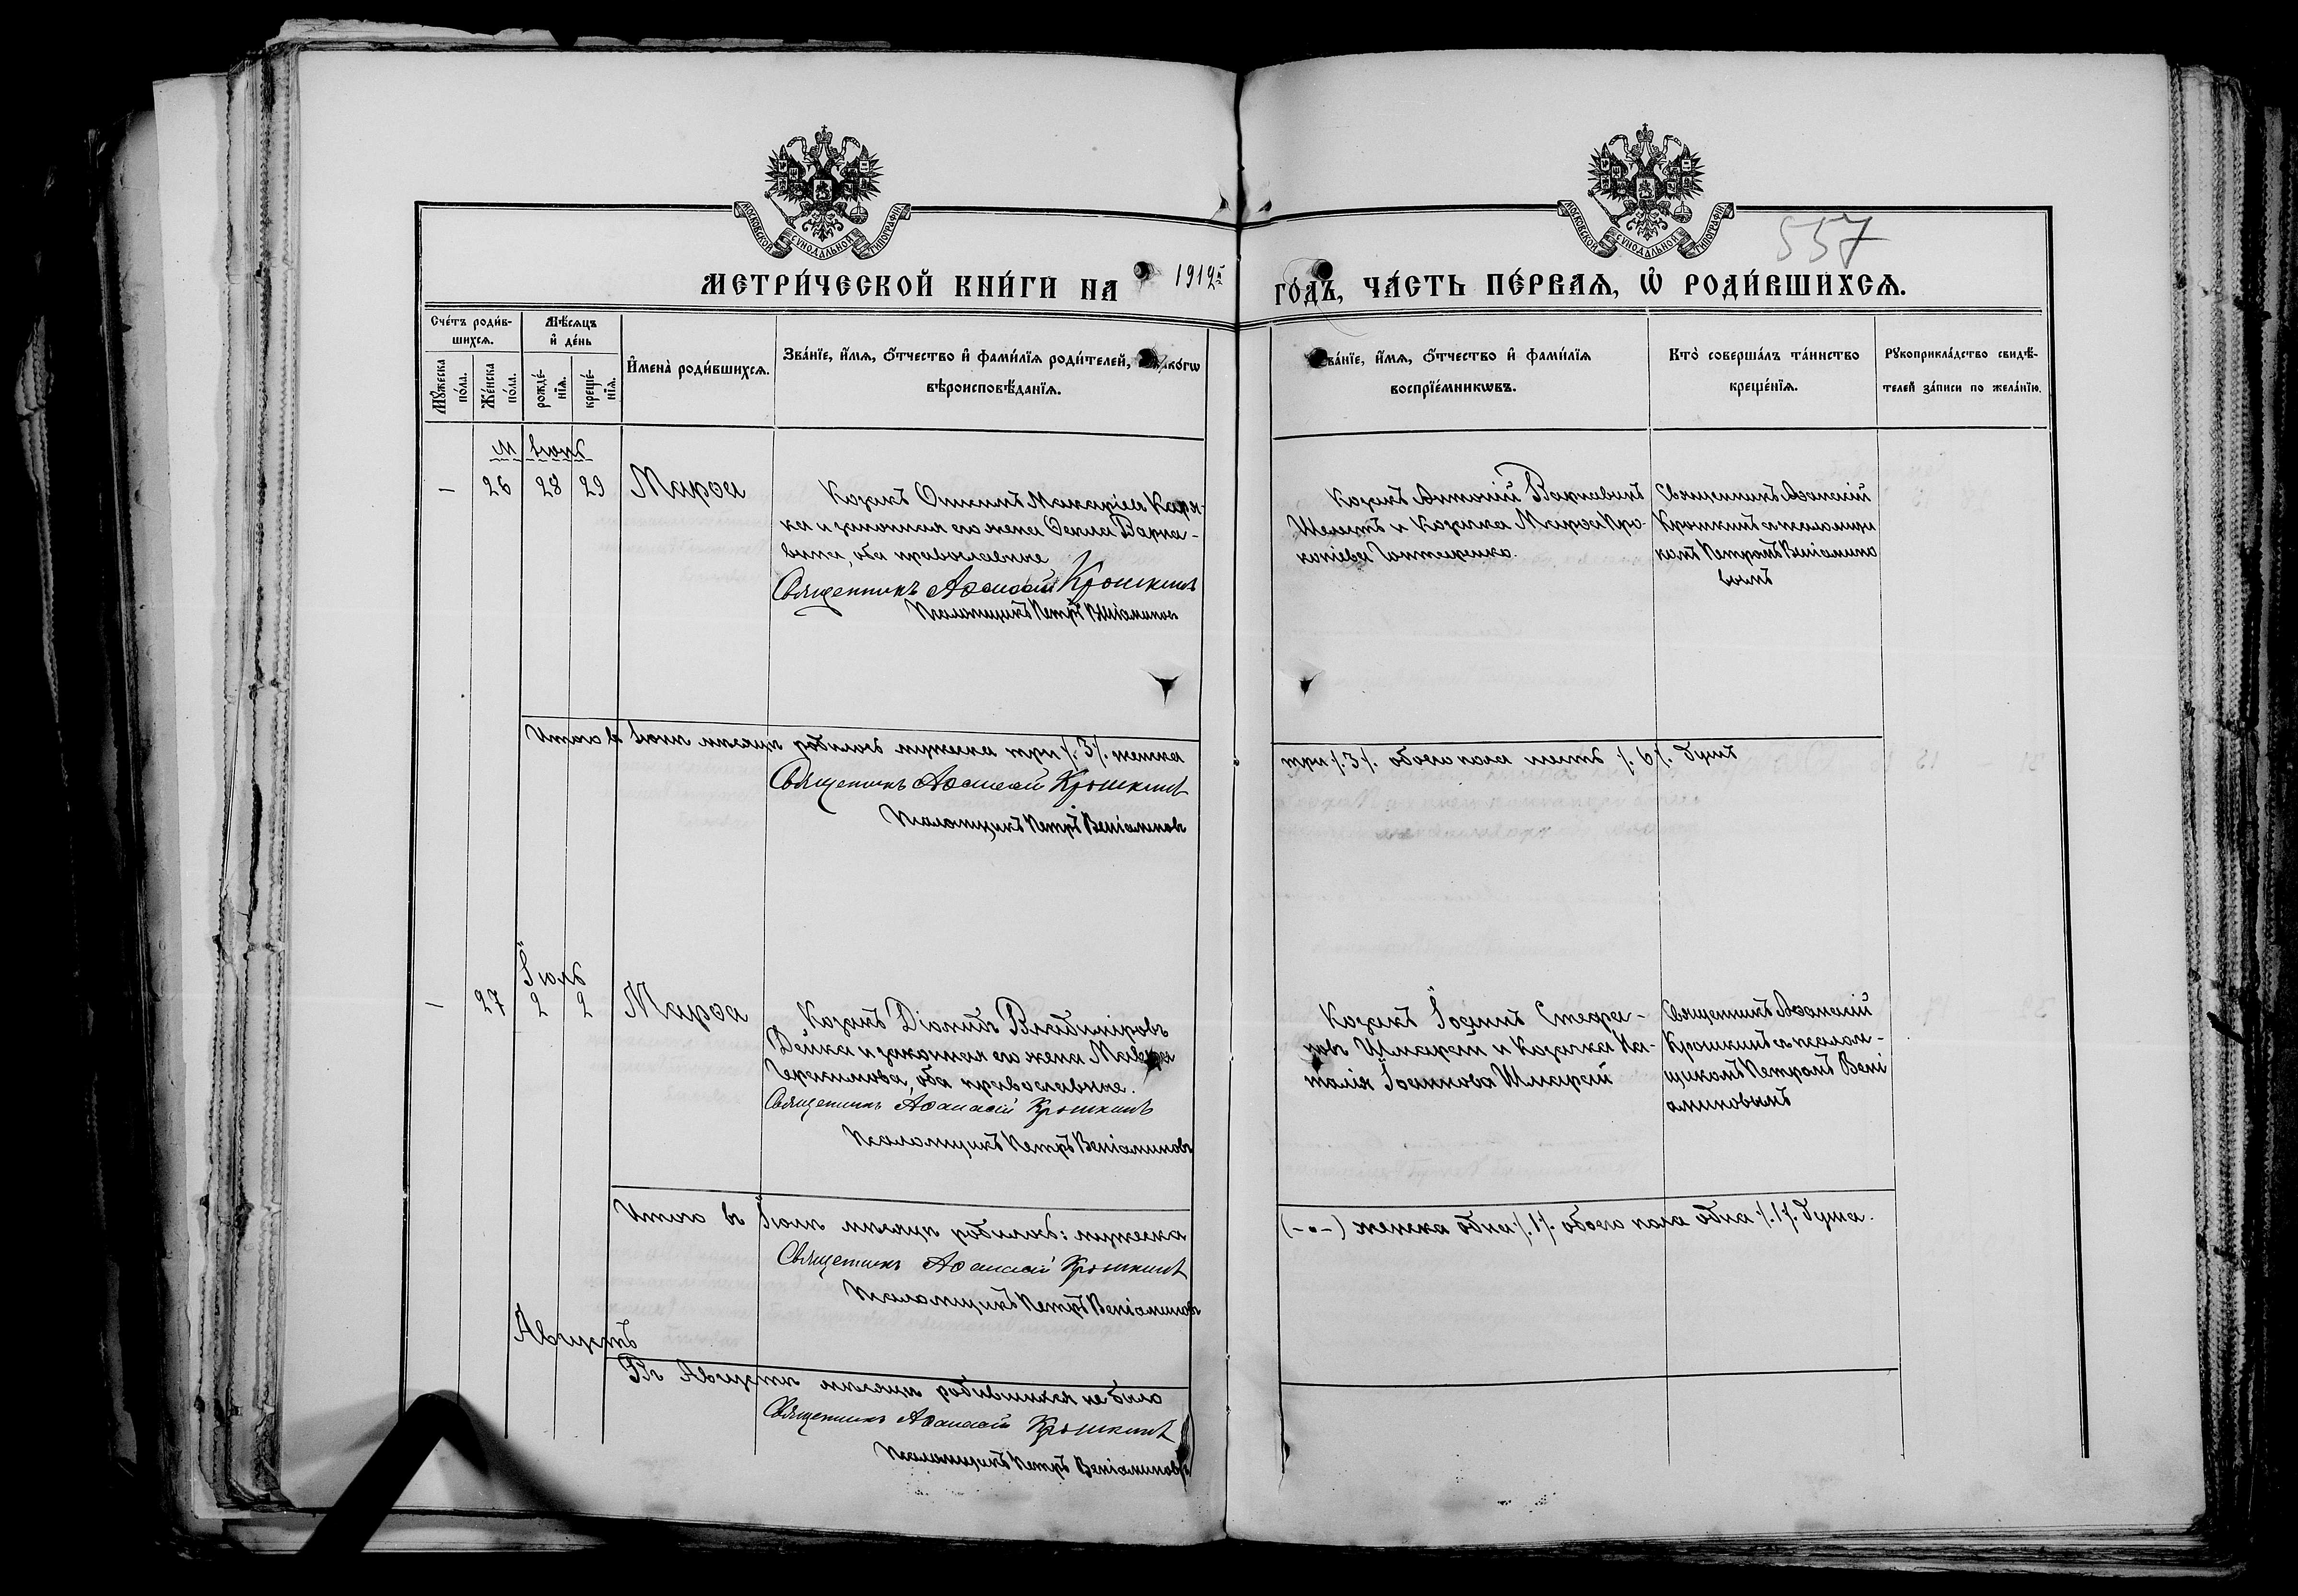 МОСКОВСКОЙ СѴНОДАЛЬНОЙ ТИПОГРАФІИ
МОСКОВСКОЙ СѴНОДАЛЬНОЙ ТИПОГРАФІИ
557
МЕТРИ́ЧЕСКОЙ КНИ́ГИ НА 1912 й ГО́ДЪ, ЧА́СТЬ ПЕ́РВАѦ, Ѡ҆ РОДИ́ВШИХСѦ.
Сче́тъ роди́в-
шихсѧ.
Мꙋ́жеска по́ла.
Же́нска по́ла.
Мѣ́сѧцъ
и҆ де́нь
рожде́-
нїѧ.
креще́-
нїѧ.
И҆мена̀ роди́вшихсѧ.
Зва́нїе, и҆́мѧ, ѻ҆́тчество и҆ фами́лїѧ роди́телей, како́гѡ
вѣроисповѣ́данїѧ.
Зва́нїе, и҆́мѧ, ѻ҆́тчество и҆ фами́лїѧ
воспрїе́мникѡвъ.
Кто̀ соверша́лъ та́инство
креще́нїѧ.
Рꙋкоприкла́дство свидѣ́-
телей за́писи по жела́нїю.
М Іюнь
— 26 28 29 Марѳа
Козакъ Макаріевъ Каря-
ка и законная его жена Ѳекла Варна-
вина, оба православные
Священникъ Аѳанасій Крошкинъ
Псаломщикъ Петръ Веніаминовъ
Козакъ Антоній Варнавинъ
Шелестъ и Козачка Марѳа Про-
копіева
Священникъ Аѳанасій
Крошкинъ съ псаломщи
комъ Петромъ Веніамино
вымъ
Итого въ Іюнѣ мѣсяцѣ родилось мужеска три /.3/. женска
три /.3/. обоего пола шесть /.6/. душъ
Священникъ Аѳанасій Крошкинъ
Псаломщикъ Петръ Веніаминовъ
Іюль
— 27 2 2 Марѳа
Козакъ Діомидъ Владиміровъ
Дейка и законная его жена Мавра
Герасимова, оба православные.
Священникъ Аѳанасій Крошкинъ
Псаломщикъ Петръ Веніаминовъ
Козакъ Іоаннъ Стефа-
новъ Шмарай и Козачка На-
талія Іоаннова Шмарай
Священникъ Аѳанасій
Крошкинъ съ псалом-
щикомъ Петромъ Вені
аминовымъ
Итого въ Іюлѣ мѣсяцѣ родилось: мужеска
(-о-) женска одна /.1/. обоего пола одна /.1/. душа.
Священникъ Аѳанасій Крошкинъ
Псаломщикъ Петръ Веніаминовъ
Августъ
Въ Августѣ мѣсяцѣ родившихся не было
Священникъ Аѳанасій Крошкинъ
Псаломщикъ Петръ Веніаминовъ